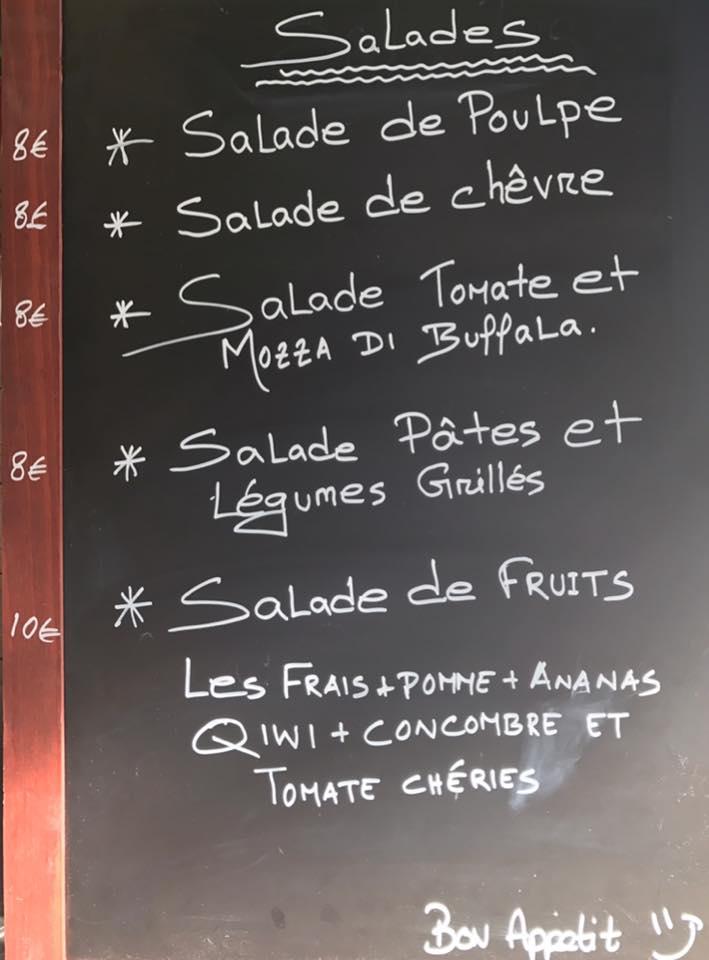 Salades
8€ * Salade de Poulpe
8€ * Salade de chêvre
8€ * Salade Tomate et
Mozza Di Buffala.
8€ * Salade Pâtes et
Légumes Grillés
10€ * Salade de FRUITS
Les FRAIS + POMME + ANANAS
QIWI + CONCOMBRE ET
TOMATE CHÉRIES
Bon Appétit